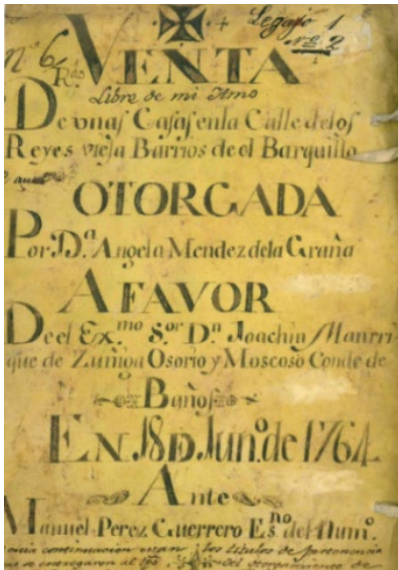 Legajo 1
nº 6
nº 2
VENTA
Rdo
Libre de mi Amo
De vnas Casas en la Calle de los
Reyes vieja Barrios de el Barquillo
OTORGADA
Por D.ª Angela Mendez de la Graña
A FAVOR
De el Ex.mo S.or D.n Joachin Manrri-
que de Zuñiga Osorio y Moscoso Conde de
Baños
EN 18 D Jun.º de 1764
Ante
Manuel Perez Guerrero Es.no del Num.º
continuacion los titulos de pertenencia
se entregaron al otorgamiento de